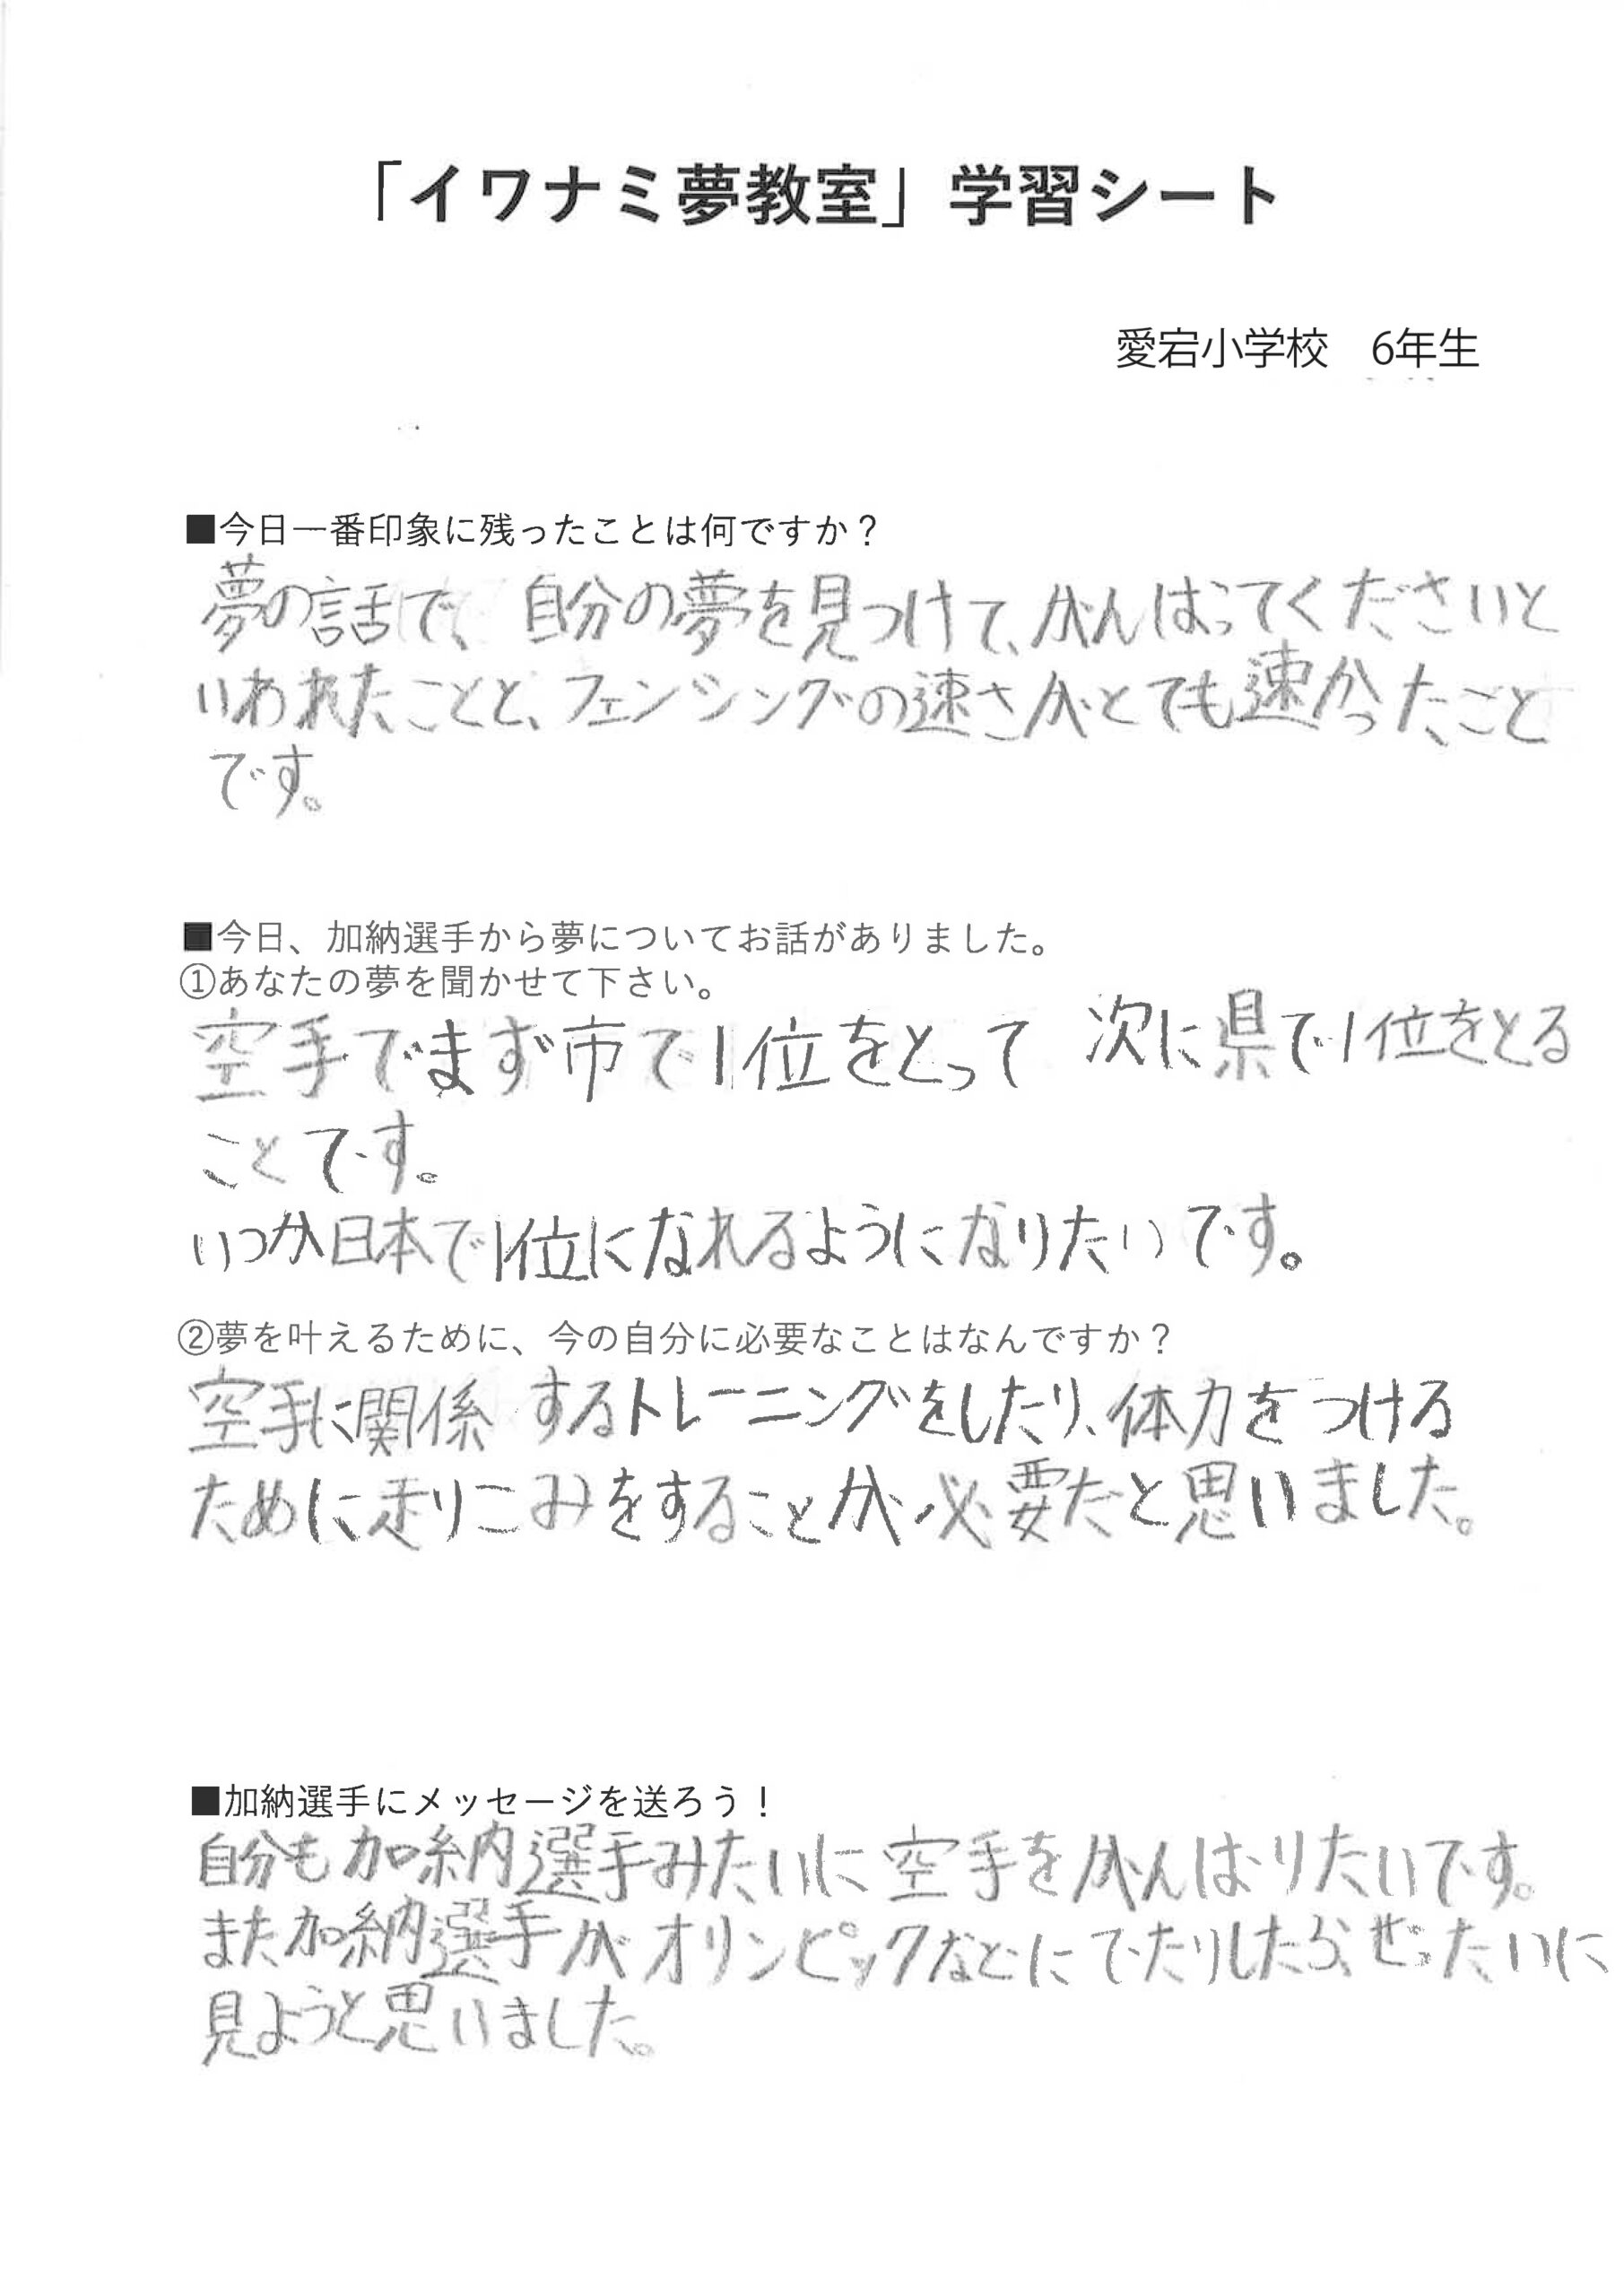 「イワナミ夢教室」学習シート
愛宕小学校　6年生
■今日一番印象に残ったことは何ですか？
夢の話で、自分の夢を見つけて、がんばってくださいと
いわれたことと、フェンシングの速さがとても速かったこと
です。
■今日、加納選手から夢についてお話がありました。
①あなたの夢を聞かせて下さい。
空手でまず市で1位をとって 次に県で1位をとる
ことです。
いつか日本で1位になれるようになりたいです。
②夢を叶えるために、今の自分に必要なことはなんですか？
空手に関係するトレーニングをしたり、体力をつける
ために走りこみをすることが必要だと思いました。
■加納選手にメッセージを送ろう！
自分も加納選手みたいに空手をがんばりたいです。
また加納選手がオリンピックなどにでたりしたら、ぜったいに
見ようと思いました。